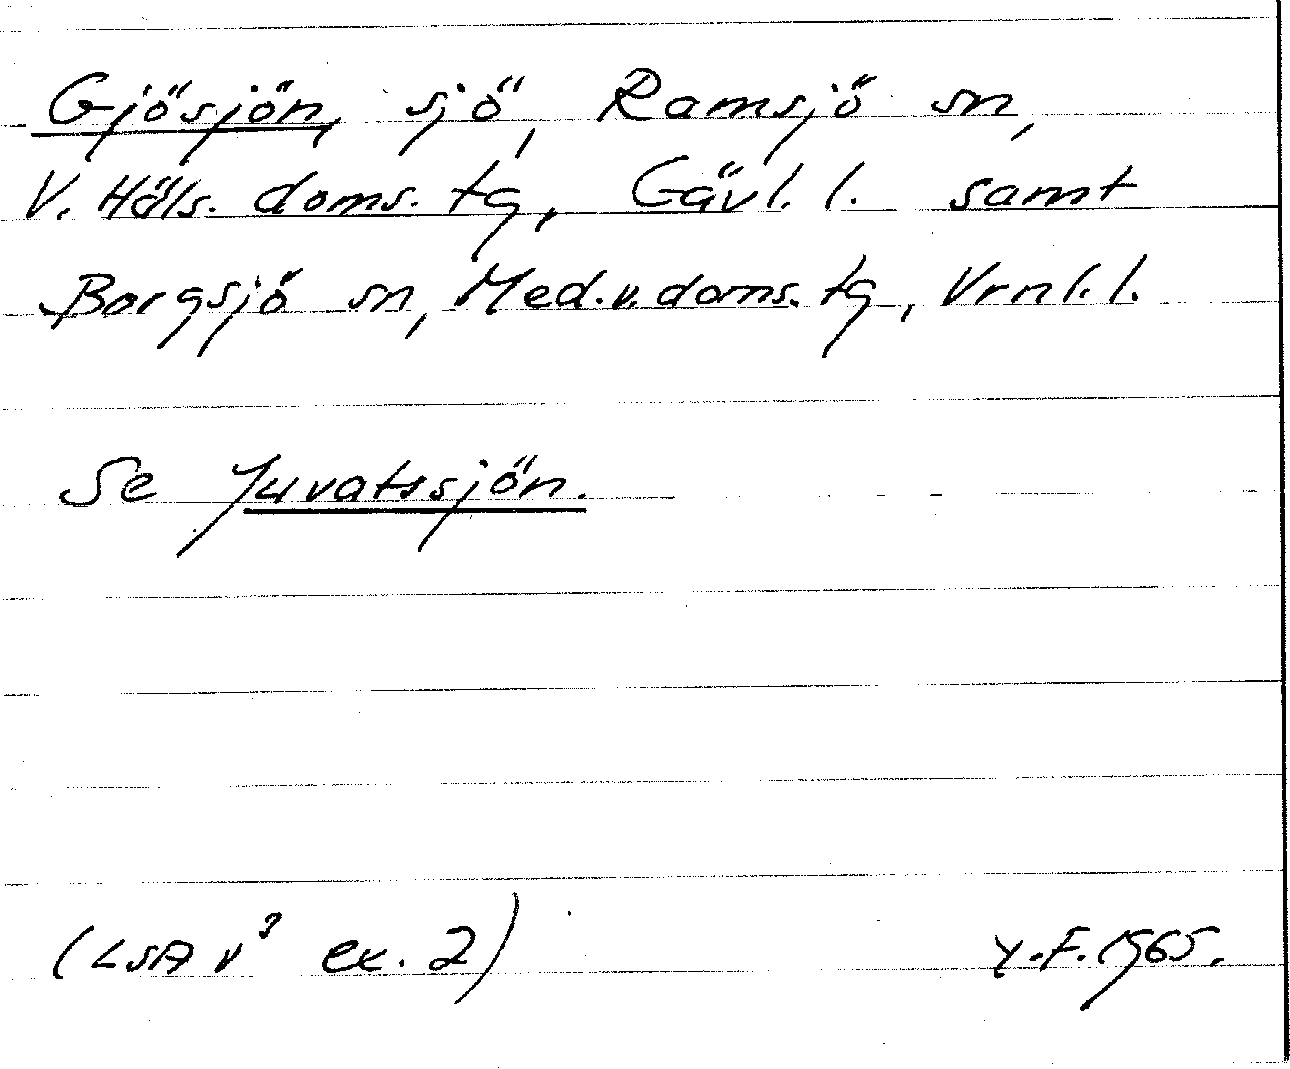 Gjösjön, sjö, Ramsjö sn,
V. Häls. doms. tg, Gävl. l. samt
Borgsjö sn, Med. v. doms. tg, Vrnl. l.
Se Juvatssjön.
(LSA v³ ex. 2) Y.F. 1965.